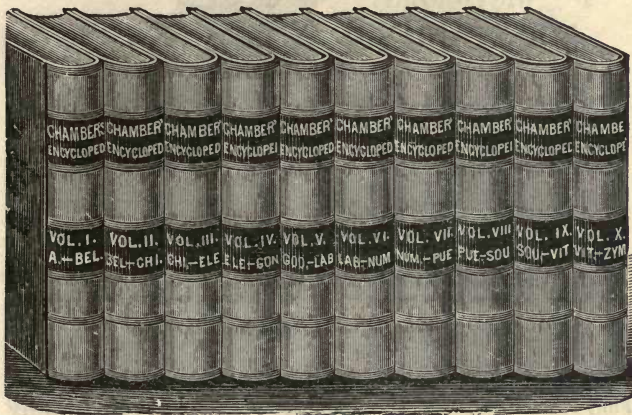 CHAMBER'S
ENCYCLOPED
VOL. I.
A.–BEL.
CHAMBER'S
ENCYCLOPED
VOL. II.
BEL–CHI.
CHAMBER'S
ENCYCLOPED
VOL. III.
CHI.–ELE
CHAMBER'S
ENCYCLOPED
VOL. IV.
ELE–GON
CHAMBER'S
ENCYCLOPED
VOL. V.
GOO.–LAB
CHAMBER'S
ENCYCLOPED
VOL. VI.
LAB–NUM
CHAMBER'S
ENCYCLOPED
VOL. VII.
NUM.–PUE
CHAMBER'S
ENCYCLOPED
VOL. VIII
PUE–SOU
CHAMBER'S
ENCYCLOPED
VOL. IX.
SOU–VIT
CHAMBE
ENCYCLOPE
VOL. X.
VIT.–ZYM